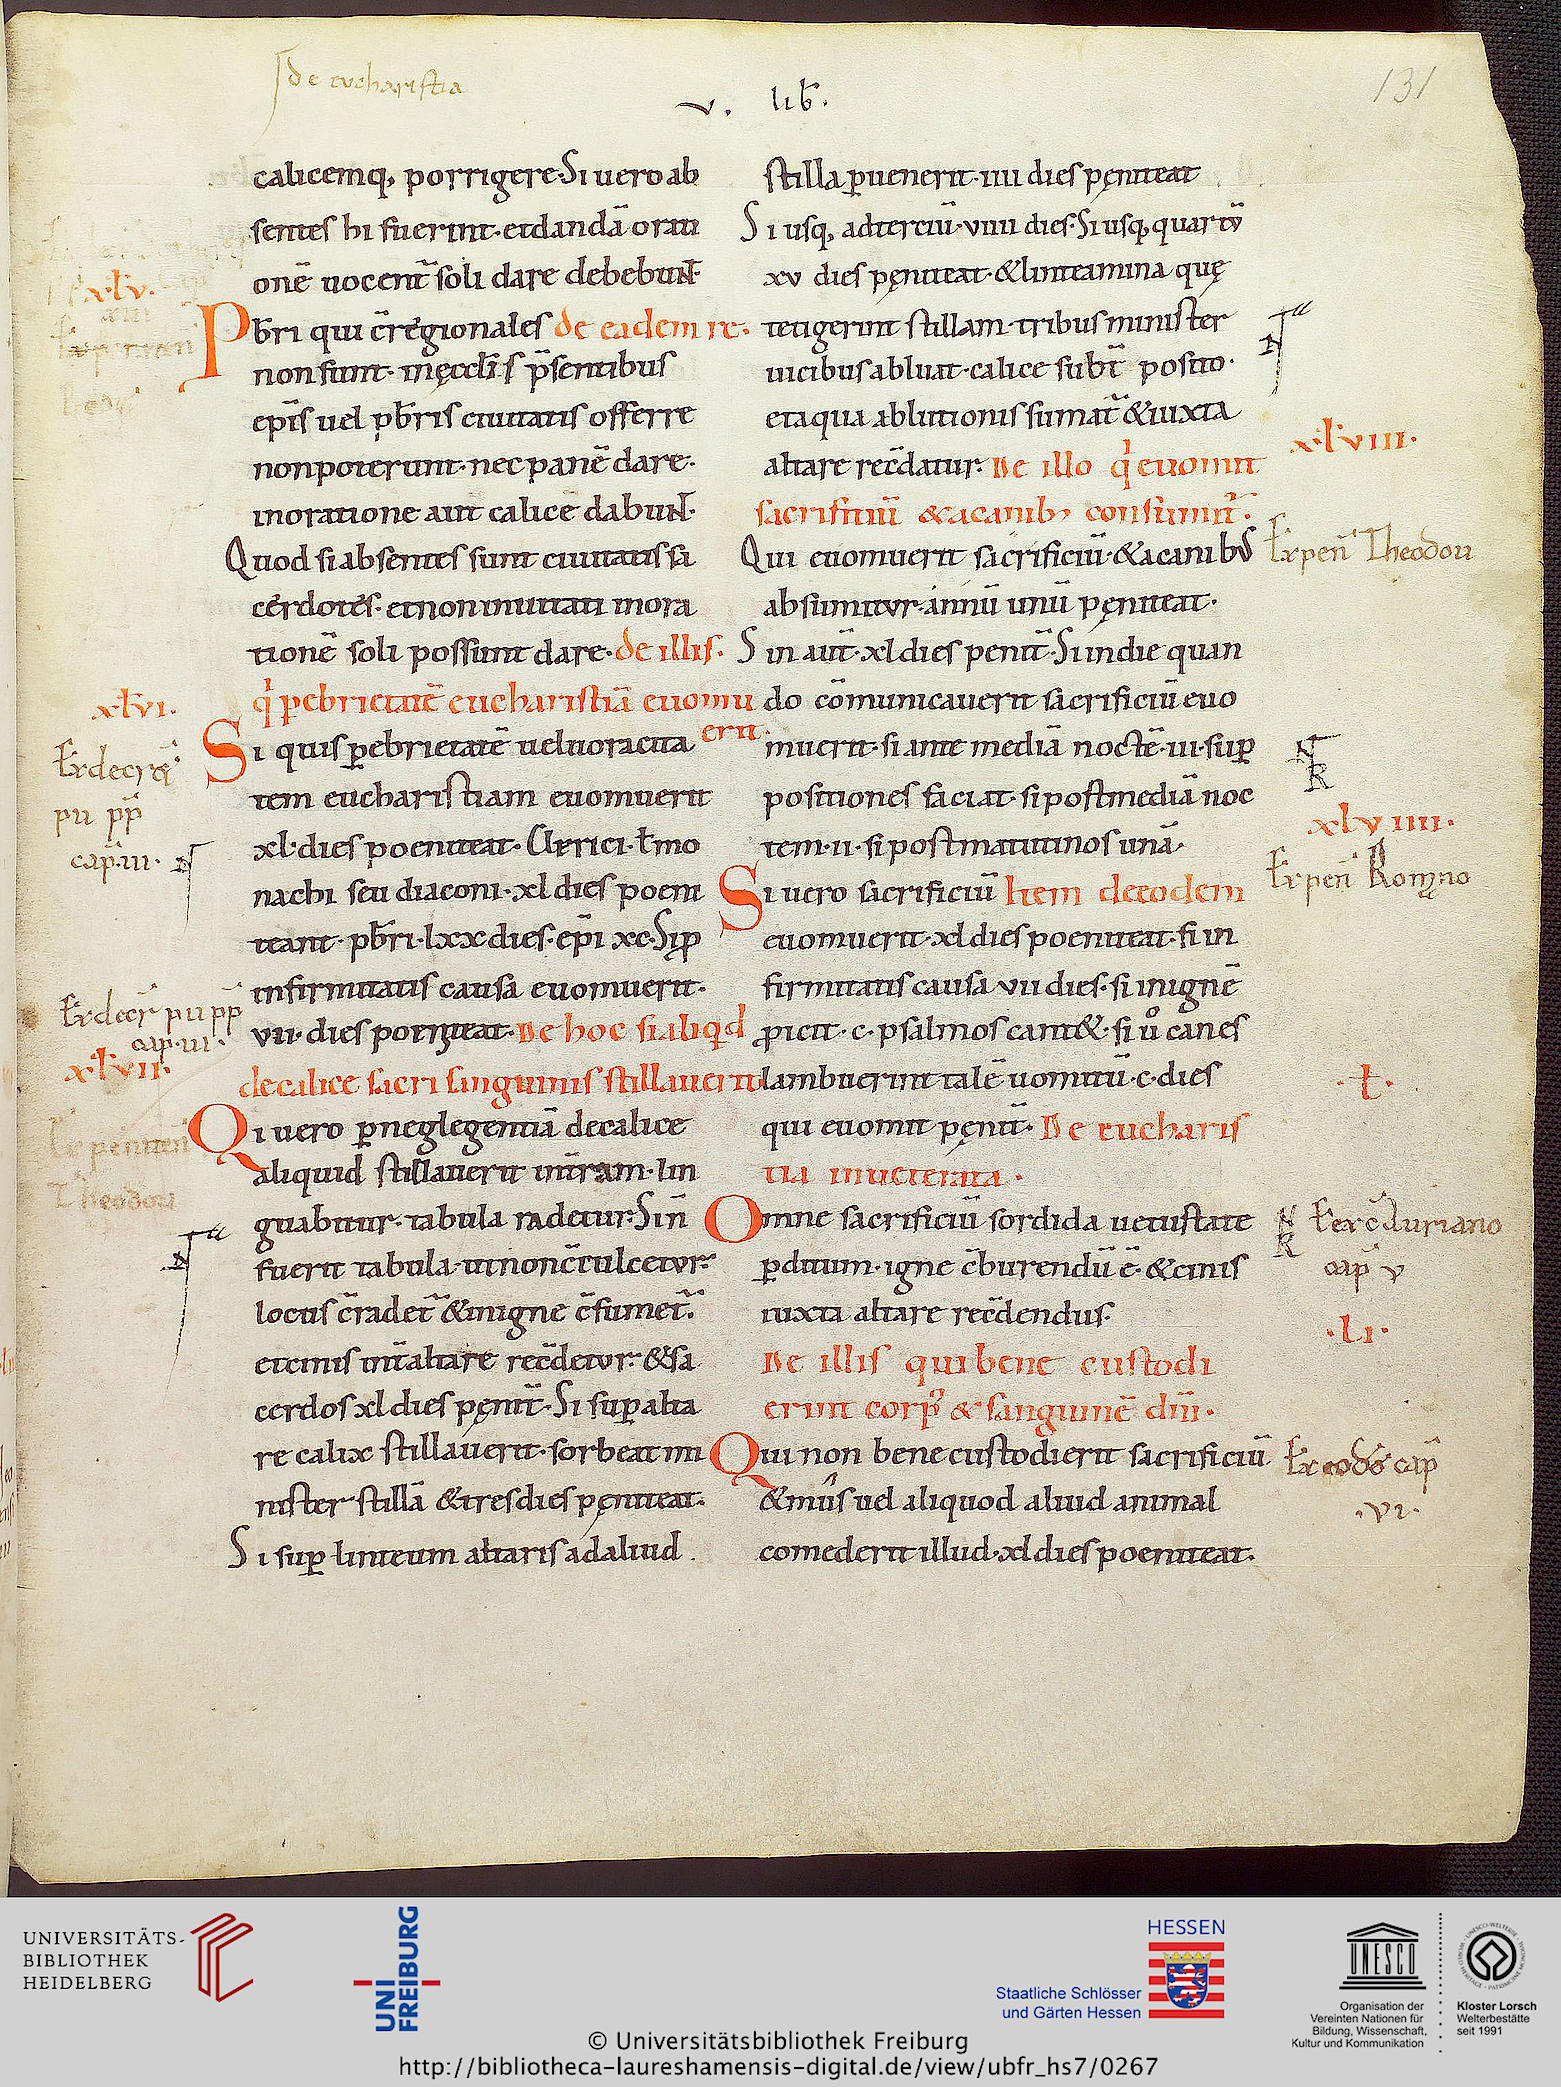 de eucharistia
v. lib̄.
131
calicemq; porrigere. Si uero ab
sentes hi fuerint. et dandā orati
onē uocent̄ soli dare debebunt
xlv.
Pb̄ri qui c̄regionales de eadem re.
non sunt. in ęccl̄is p̄sentibus
ep̄is uel pb̄ris ciuitatis offerre
non poterunt. nec panē dare.
in oratione aut calicē dabunt.
Quod si absentes sunt ciuitatis sa
cerdotes. et non inuitati in ora
tionē soli possunt dare. de illis.
xlvi.
q̇ p ebrietatē eucharistiā euomu
erit.
Si quis p ebrietatē uel uoracita
tem eucharistiam euomuerit
xl. dies poeniteat. Clerici. t̄ mo
nachi seu diaconi. xl dies poeni
teant. pb̄ri. lxx dies. ep̄i xc. Si p
infirmitatis causa euomuerit.
vii. dies poeniteat. De hoc si aliqd
Ex decr̄ pii pp̄
cap̄. iii.
Ex decr̄ pii pp̄
cap. iii.
xlvii.
de calice sacri sanguinis stillauerit
Qi uero p neglegentiā de calice
aliquid stillauerit in t̄ram. lin
guabitur. tabula radetur. Si n̄
fuerit tabula. ut non c̄culcetur.
locus c̄radet̄ & in igne c̄sumet̄.
et cinis int̄ altare rec̄detur. & sa
cerdos xl dies pęnit̄. Si sup alta
re calix stillauerit. sorbeat mi
nister stillā & tres dies pęniteat.
Si sup linteum altaris ad aliud
Ex peniten̄
Theodori
stilla puenerit. iiii dies pęniteat
Si usq; ad terciū. viiii dies. Si usq; quartū
xv dies pęniteat. & linteamina quę
tetigerint stillam. tribus minister
uicibus abluat. calice subt̄ posito.
et aqua ablutionis sumat̄ & iuxta
altare rec̄datur. De illo q̇ euomit
xlviii.
sacrificiū & a canib; consumit̄.
Qui euomuerit sacrificiū. & a canibus
Ex pen̄ Theodori
absumitur. annū unū pęniteat.
Sin aut̄. xl dies penit̄. Si in die quan
do cōmunicauerit sacrificiū euo
muerit. si ante mediā noctē. iii. sup
positiones faciat. si post mediā noc
tem. ii. si post matutinos unā.
xlviiii.
Si uero sacrificiū Item de eodem
Ex pen̄ Romano
euomuerit. xl dies poeniteat. si in
firmitatis causa vii dies. si in ignē
picit. c. psalmos cant&. si u̇o canes
lambuerint talē uomitū. c. dies
.l.
qui euomit pęnit̄. De eucharis
tia inueterata.
Omne sacrificiū sordida uetustate
pditum. igne c̄burendū ē. & cinis
cap̄ v
iuxta altare rec̄dendus.
.li.
De illis qui bene custodi
erint corp; & sanguinē dn̄i.
Qui non bene custodierit sacrificiū
& mus uel aliquod aliud animal
.vi.
comederit illud. xl dies poeniteat.
UNIVERSITÄTS-
BIBLIOTHEK
HEIDELBERG
UNI
FREIBURG
HESSEN
Staatliche Schlösser
und Gärten Hessen
UNESCO
Organisation der
Vereinten Nationen für
Bildung, Wissenschaft,
Kultur und Kommunikation
Kloster Lorsch
Welterbestätte
seit 1991
© Universitätsbibliothek Freiburg
http://bibliotheca-laureshamensis-digital.de/view/ubfr_hs7/0267